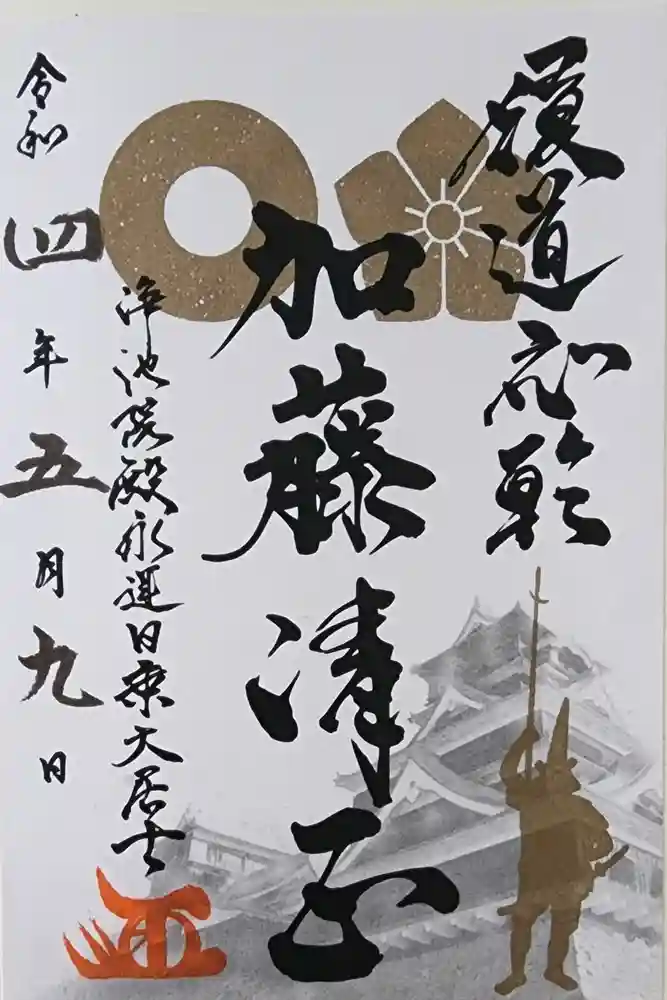 履道応乾
加藤清正
浄池院殿永運日乗大居士
令和四年五月九日